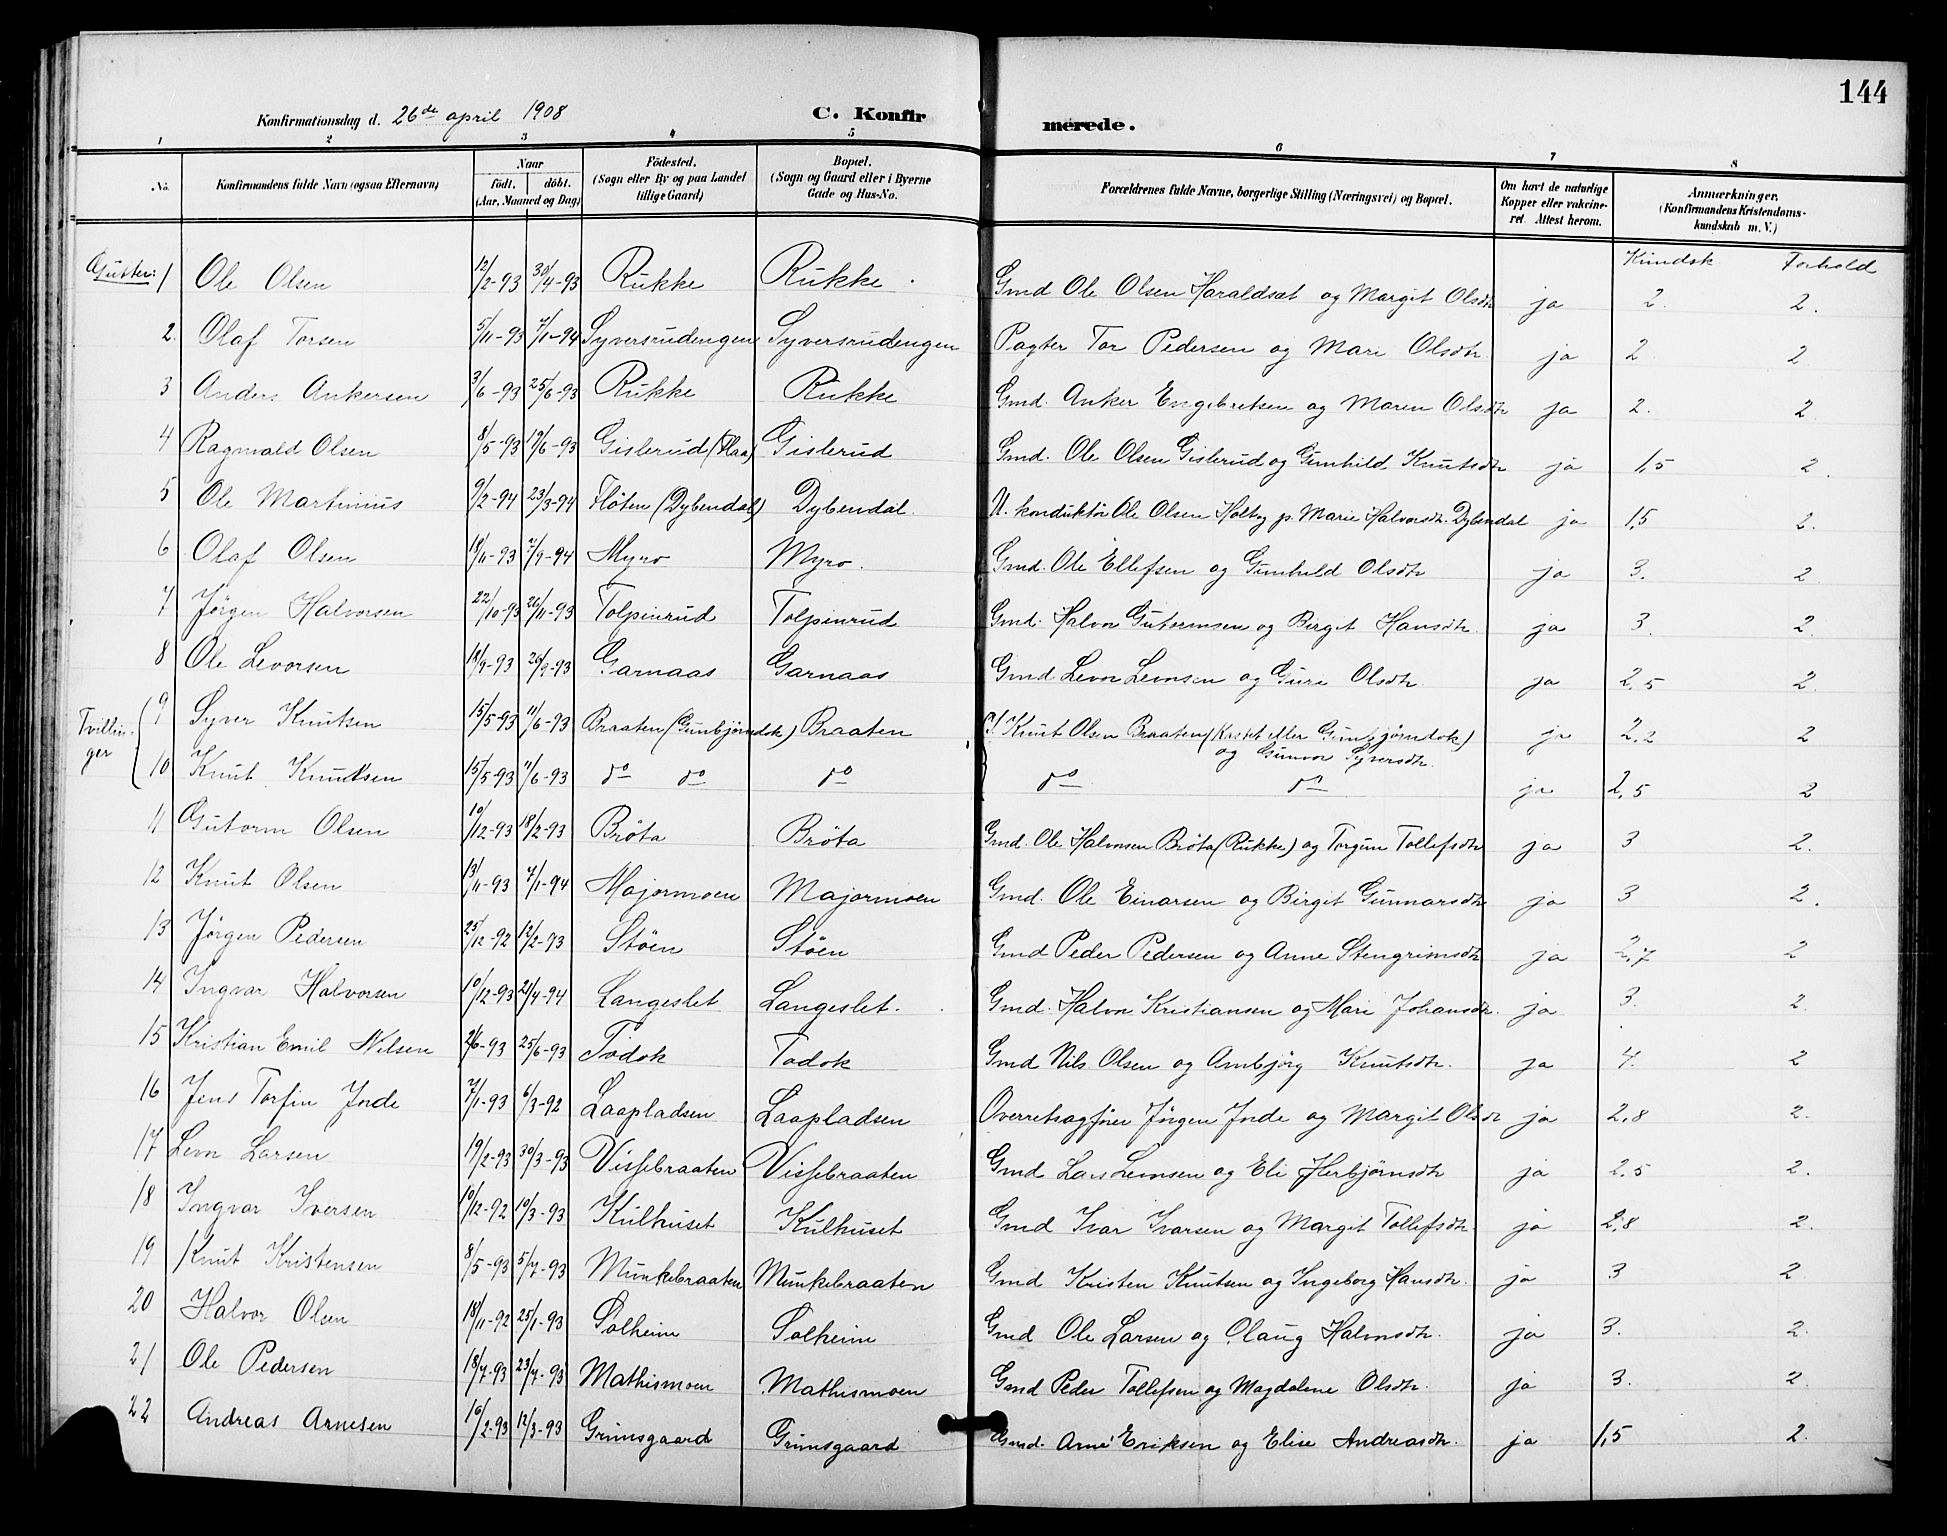 144
Konfirmationsdag d. 26de april 1908 C. Konfirmerede.
1 2 3 4 5 6 7 8
No. Konfirmandens fulde Navn (ogsaa Efternavn) Naar födt. döbt. (Aar, Maaned og Dag) Födested. (Sogn eller By og paa Landet tillige Gaard) Bopæl. (Sogn og Gaard eller i Byerne Gade og Hus-No. Forældrenes fulde Navne, borgerlige Stilling (Næringsvei) og Bopæl. Om havt de naturlige Kopper eller vakcineret Attest herom. Anmærkninger. (Konfirmandens Kristendomskundskab m. V.)
Kundsk Forhold
Gutter: 1 Ole Olsen 12/2-93 30/4-93 Rukke Rukke Gmd Ole Olsen Haraldset og Margit Olsdtr ja 2. 2.
2. Olaf Torsen 5/11-93 7/1-94 Syversrudengen Syversrudengen Pagter Tor Pedersen og Mari Olsdtr ja 2 2
3 Anders Ankersen 3/6-93 25/6-93 Rukke Rukke Gmd. Anker Engebretsen og Maren Olsdtr ja 2. 2
4 Ragnvald Olsen 8/5-93 19/6-93 Gislerud (Flaa) Gislerud Gmd. Ole Olsen Gislerud og Gunhild Knutsdtr ja 1,5 2.
5 Ole Martinius 9/2-94 23/3-94 Fløten (Dybendal) Dybendal. U. konduktör Ole Olsen Holt og p. Marie Halvorsdtr. Dybendal ja 1,5 2.
6 Olaf Olsen 18/11-93 2/9-94 Myro Myro. Gmd. Ole Ellefsen og Gunhild Olsdtr ja 3. 2
7 Jørgen Halvorsen 22/10-93 26/11-93 Tolpinrud Tolpinrud Gmd. Halvor Gutormsen og Birget Hansdtr. ja 3. 2.
8 Ole Levorsen 18/9-93 20/9-93 Garnaas Garnaas Gmd Levor Levorsen og Guri Olsdtr ja 2,5 2.
Tvillinger
9 Syver Knutsen 15/5-93 11/6-93 Braaten (Gunbjörndok) Braaten Knut Olsen Braaten (Kastet eller Gunbjörndok) og Gunvor Syversdtr. ja 2,2 2
10 Knut Knudsen 15/5-93 11/6-93 do do do do do ja 2,5 2
11 Gutorm Olsen 10/12-93 18/2-93 Bröta Bröta Gmd. Ole Halvorsen Bröta (Rukke) og Torgun Tollefsdtr ja 3 2.
12 Knut Olsen 13/11-93 7/1-94 Majormoen Majormoen Gmd. Ole Einarsen og Birgit Gunnarsdtr ja 3 2.
13 Jørgen Pedersen 25/12-92 12/2-93 Stöen Stöen Gmd Peder Pedersen og Anne Stengrimsdtr ja 2,7 2
14 Ingvar Halvorsen 10/12-93 21/4-94 Langeslet Langeslet. Gmd. Halvor Kristiansen og Mari Johansdtr. ja 3. 2.
15 Kristian Emil Nilsen 2/6-93 25/6-93 Todok Todok Gmd Nils Olsen og Ambjörg Knutsdtr. ja 4. 2
16 Jens Torfin Jorde 7/1-93 6/3-92 Laapladsen Laapladsen Overretsagförer Jörgen Jorde og Margit Olsdtr ja 2,8 2.
17 Levor Larsen 19/2-93 30/3-93 Vissebraaten Vissebraaten Gmd Lars Levorsen og Eli Herbjørnsdtr ja 2,5 2.
18 Ingvar Iversen 10/12-92 19/3-93 Kulhuset Kulhuset Gmd Ivar Ivarsen og Margit Tollefsdtr. ja 2,8 2.
19 Knut Kristensen 8/5-93 5/7-93 Munkebraaten Munkebraaten Gmd Kristen Knutsen og Ingeborg Hansdtr. ja 3 2
20 Halvor Olsen 18/11-92 25/1-93 Solheim Solheim Gmd Ole Larsen og Olaug Halvorsdtr. ja 3. 2.
21 Ole Pedersen 18/7-93 23/7-93 Mathismoen Mathismoen Gmd Peder Tollefsen og Magdalene Olsdtr. ja 3. 2
22 Andreas Arnesen 16/2-93 12/3-93 Grimsgaard Grimsgaard Gmd. Arne Eriksen og Elise Andreasdtr. ja 1,5 2.